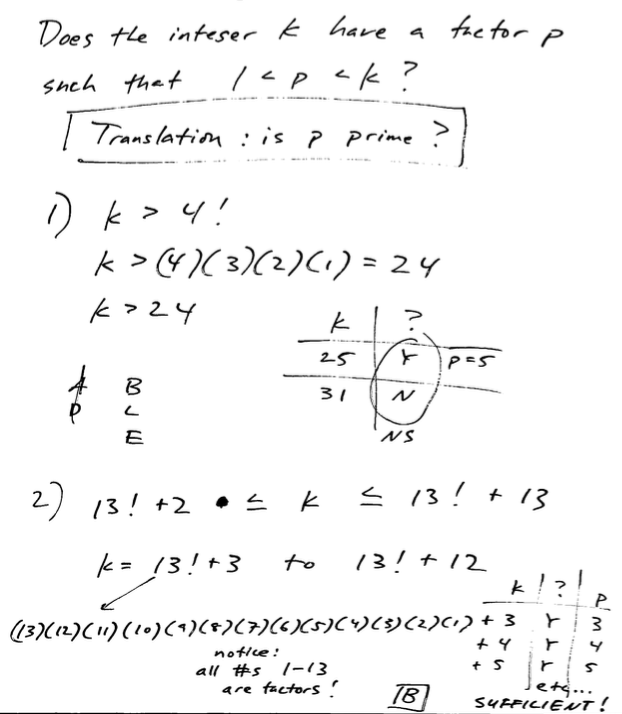 Does the integer k have a factor p
such that 1 < p < k ?
Translation : is p prime ?
1) k > 4 !
k > (4)(3)(2)(1) = 24
k > 24
k ?
25 Y p=5
31 N
NS
A B
D C
E
2) 13! +2 ≤ k ≤ 13! + 13
k = 13! +3 to 13! + 12
k ? p
((13)(12)(11)(10)(9)(8)(7)(6)(5)(4)(3)(2)(1) + 3 Y 3
+ 4 Y 4
+ 5 Y 5
etc...
notice:
all #s 1-13
are factors !
B
SUFFICIENT !